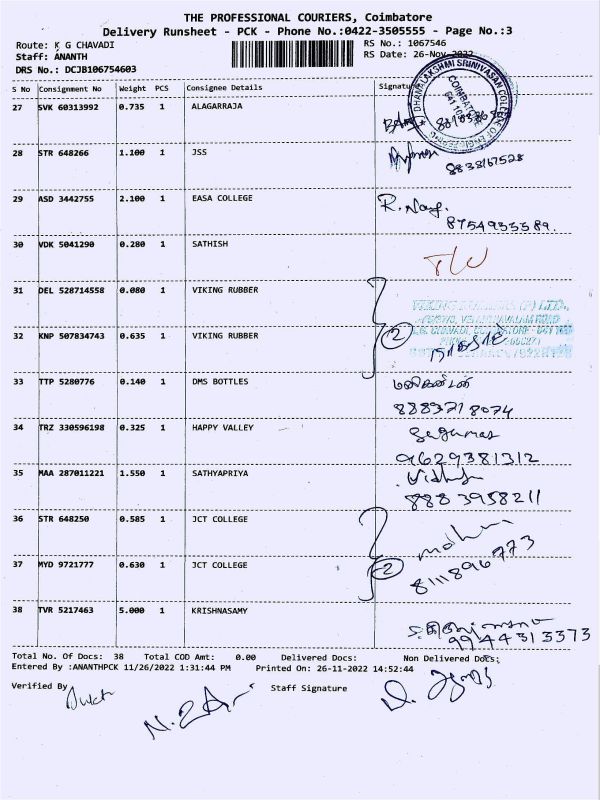 THE PROFESSIONAL COURIERS, Coimbatore
Delivery Runsheet - PCK - Phone No.:0422-3505555 - Page No.:3
Route: K G CHAVADI
RS No.: 1067546
Staff: ANANTH
RS Date: 26-Nov-2022
DRS No.: DCJB106754603
S No Consignment No Weight PCS Consignee Details Signature
DHANALAKSHMI SRINIVASAN COLLEGE OF ENGINEERING
COIMBATORE
27 SVK 60313992 0.735 1 ALAGARRAJA
28 STR 648266 1.100 1 JSS
8838167528
29 ASD 3442755 2.100 1 EASA COLLEGE R.
8754933589.
30 VDK 5041290 0.280 1 SATHISH
31 DEL 528714558 0.080 1 VIKING RUBBER
32 KNP 507834743 0.635 1 VIKING RUBBER 2
33 TTP 5280776 0.140 1 DMS BOTTLES மணிகண்டன்
8883718074
34 TRZ 330596198 0.325 1 HAPPY VALLEY
9629381312
35 MAA 287011221 1.550 1 SATHYAPRIYA
8883958211
36 STR 648250 0.585 1 JCT COLLEGE
37 MYD 9721777 0.630 1 JCT COLLEGE 2
8111896773
38 TVR 5217463 5.000 1 KRISHNASAMY
9944313373
Total No. Of Docs: 38 Total COD Amt: 0.00 Delivered Docs: Non Delivered Docs:
Entered By :ANANTHPCK 11/26/2022 1:31:44 PM Printed On: 26-11-2022 14:52:44
Verified By Staff Signature